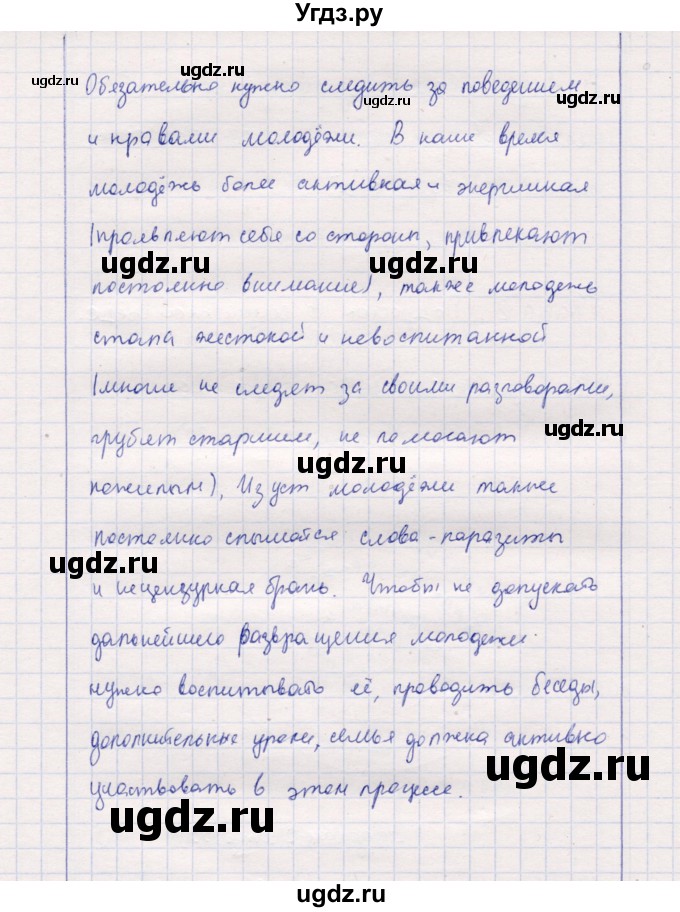 Угдз.ру
Обязательно нужно следить за поведением
и нравами молодёжи. В наше время
молодёжь более активная и энергичная
(проявляют себя со сторон, привлекают
постоянно внимание), также молодежь
стала жестокой и невоспитанной
(многие не следят за своими разговорами,
грубят старшим, не помогают
пожилым). Из уст молодёжи также
постоянно слышатся слова-паразиты
и нецензурная брань. Чтобы не допускать
дальнейшего развращения молодежи
нужно воспитывать её, проводить беседы,
дополнительные уроки, семья должна активно
участвовать в этом процессе.
ugdz.ru
ugdz.ru
ugdz.ru
ugdz.ru
ugdz.ru
ugdz.ru
ugdz.ru
ugdz.ru
ugdz.ru
ugdz.ru
ugdz.ru
ugdz.ru
ugdz.ru